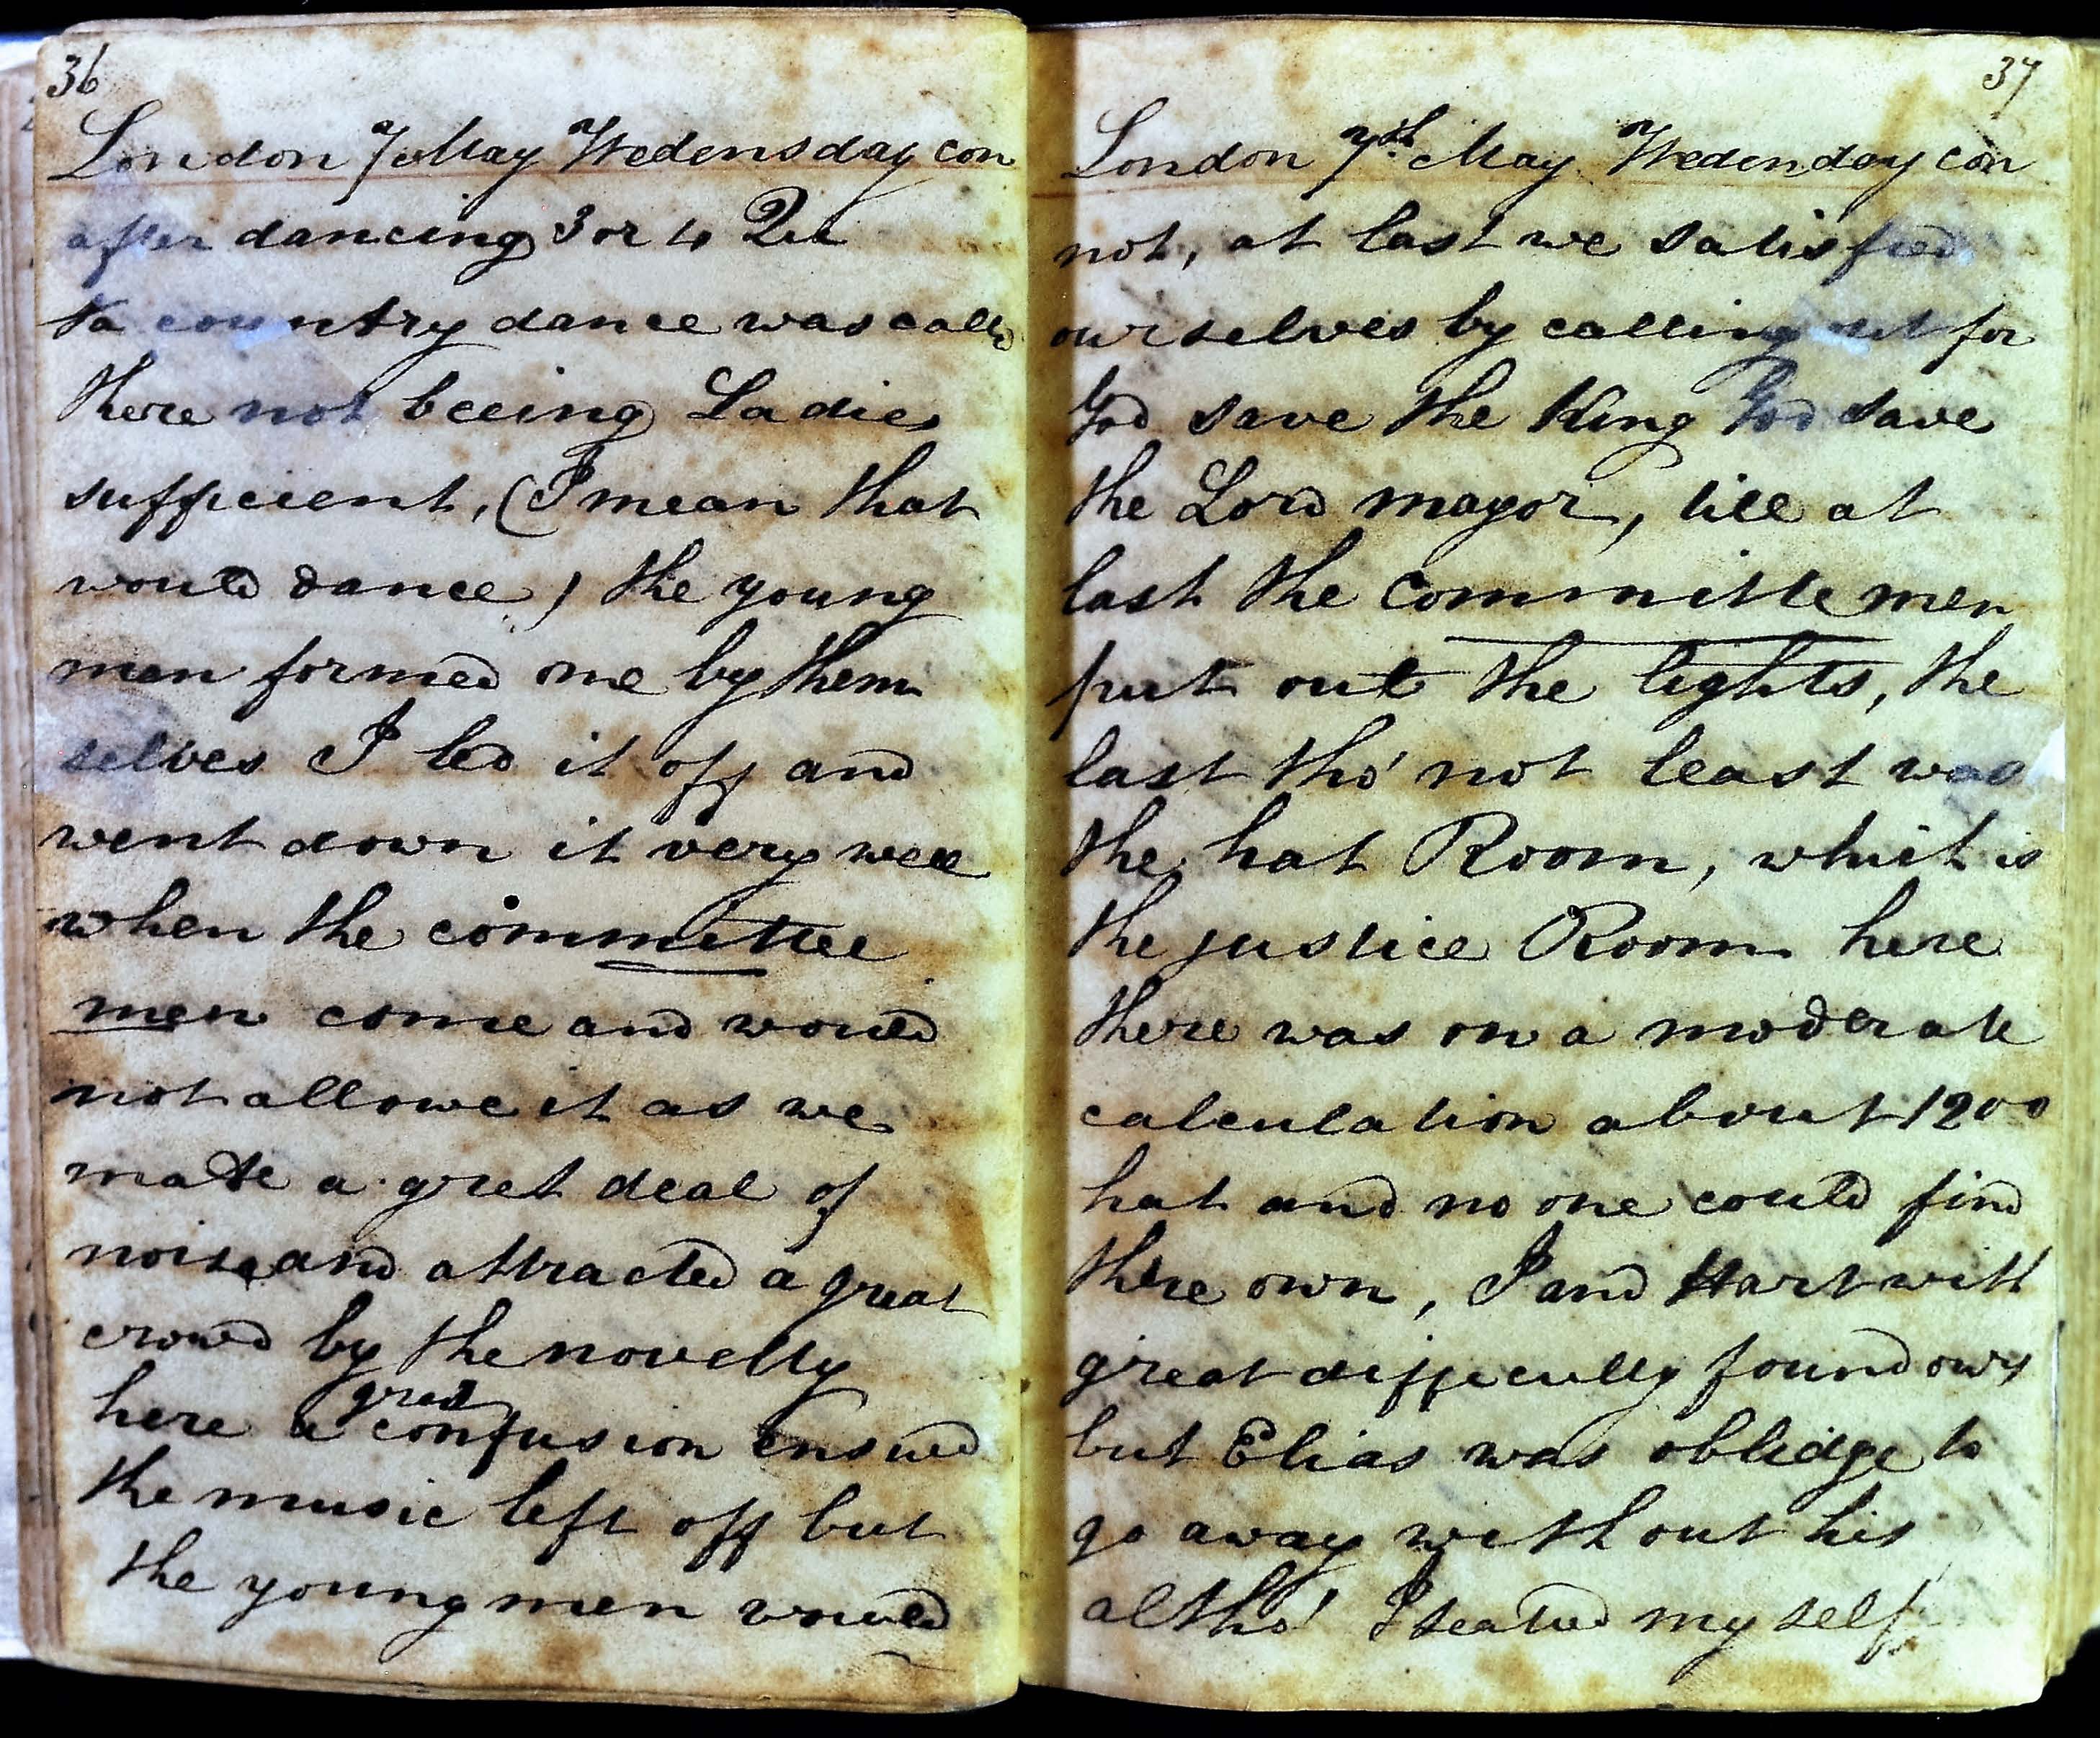 36
London 7 May Wedensday con
after dancing 3 or 4 Qu
a country dance was calld
there not beeing Ladies
sufficient, (I mean that
would dance) the young
men formed one by them
selves I led it off and
went down it very well
when the committee
men come and would
not allowe it as we
made a gret deal of
noise and attracted a great
crowd by the novelty
here a gret confusion ensued
the music left off but
the young men would
37
London 7th May Wedenday con
not, at last we satisfied
ourselves by calling out for
God save the King God save
the Lord mayor, till at
last the committe men
put out the lights, the
last tho' not least was
the hat Room, whith is
the justice Room here
there was on a moderate
calculation about 1200
hat and no one could find
there own, I and Hart with
great difficully found ows
but Elias was oblidge to
go away without his
altho' I seated my self